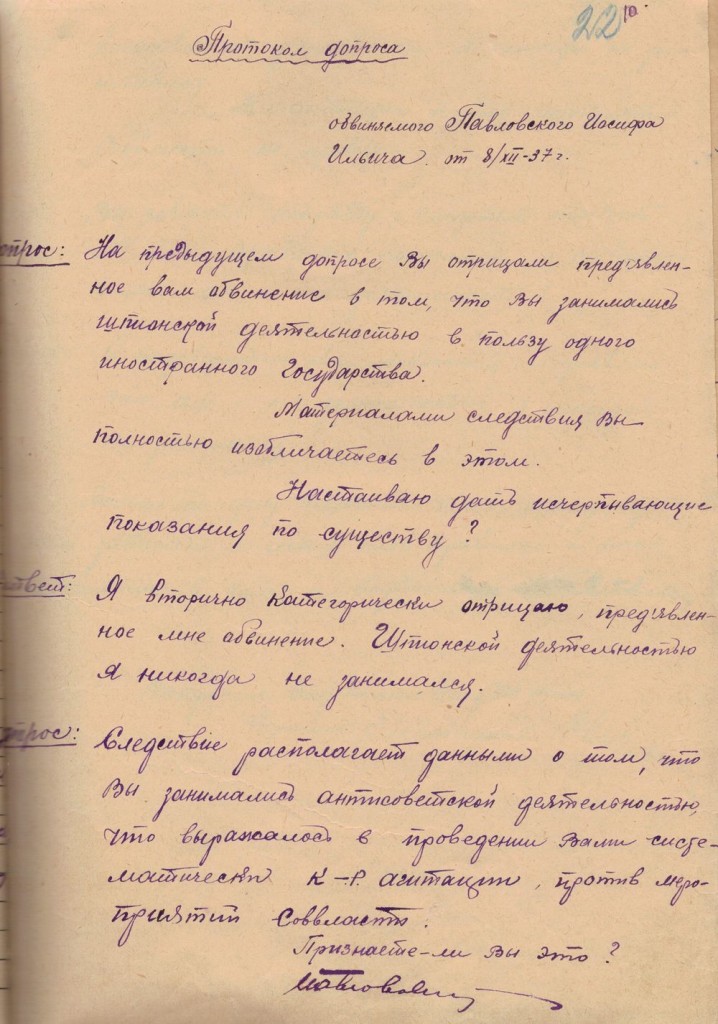 22
Протокол допроса
обвиняемого Павловского Иосифа
Ильича. от 8/XII-37 г.
опрос: На предыдущем допросе Вы отрицали предъявлен-
ное вам обвинение в том, что Вы занимались
шпионской деятельностью в пользу одного
иностранного Государства.
Материалами следствия Вы
полностью изобличаетесь в этом.
Настаиваю дать исчерпывающие
показания по существу?
ответ: Я вторично Категорически отрицаю, предъявлен-
ное мне обвинение. Шпионской деятельностью
я никогда не занимался.
опрос: Следствие располагает данными о том, что
Вы занимались антисоветской деятельностью,
что выражалось в проведении Вами систе-
матически К-Р. агитации, против меро-
приятий Соввласти.
Признаете-ли Вы это?